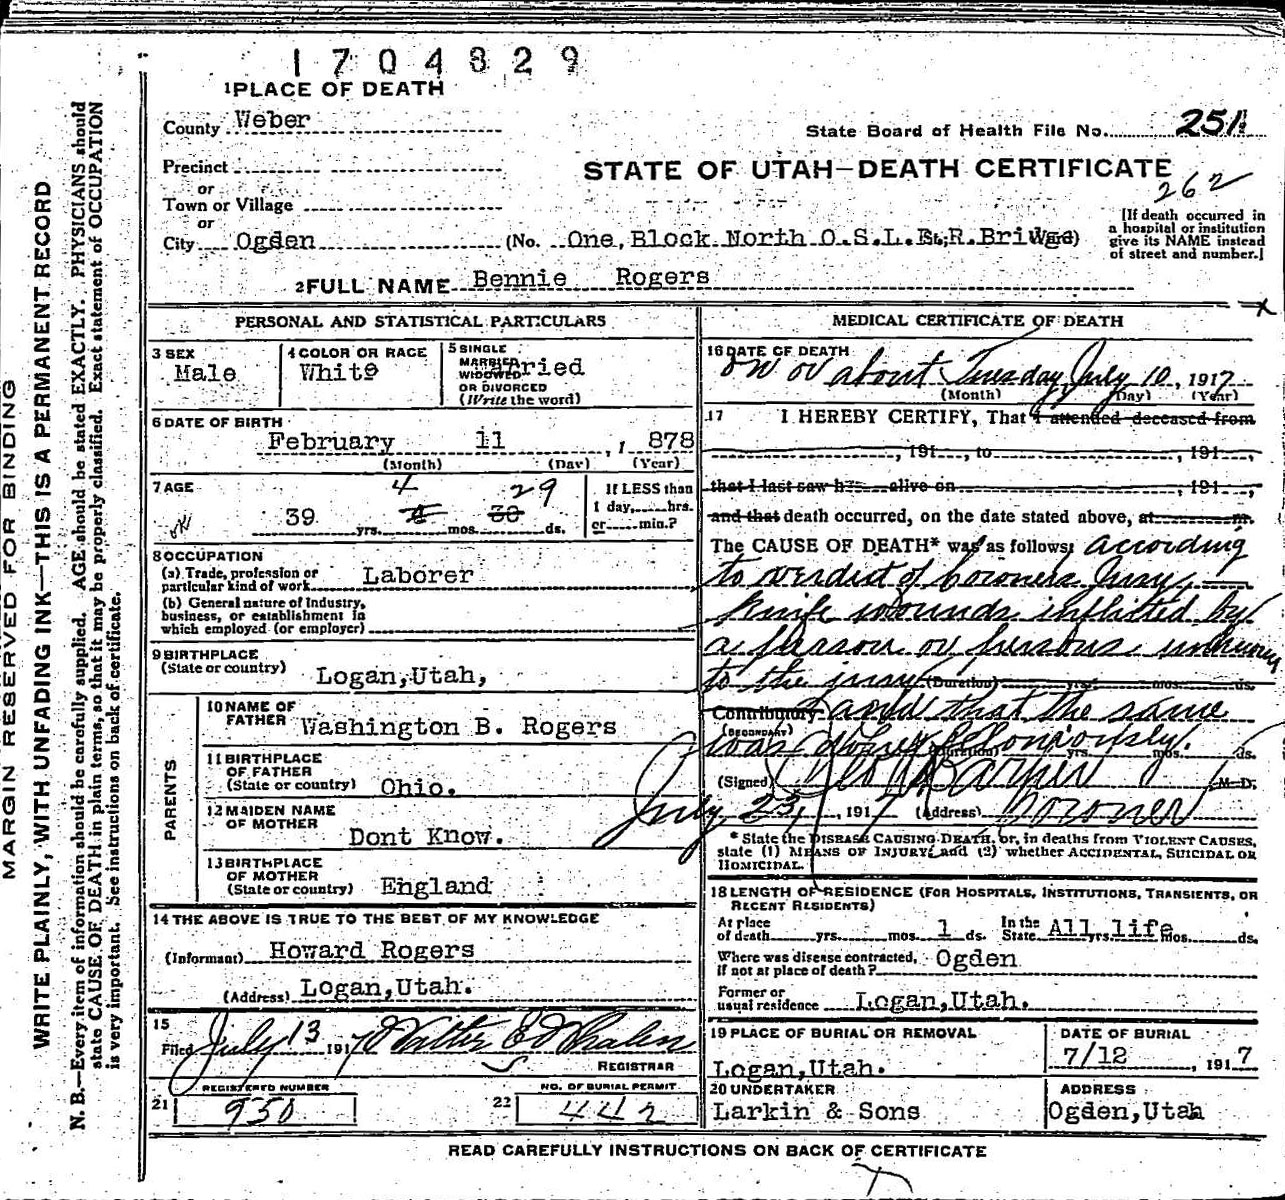 1704829
1 PLACE OF DEATH
County Weber
State Board of Health File No. 251
Precinct
STATE OF UTAH—DEATH CERTIFICATE
262
or
Town or Village
or
City Ogden (No. One Block North O.S.L. R.R. Bridge St.; Ward)
[If death occurred in
a hospital or institution
give its NAME instead
of street and number.]
2 FULL NAME Bennie Rogers
PERSONAL AND STATISTICAL PARTICULARS
3 SEX
Male
4 COLOR OR RACE
White
5 SINGLE
MARRIED
WIDOWED
OR DIVORCED
(Write the word)
Married
6 DATE OF BIRTH
February 11, 1878
(Month) (Day) (Year)
7 AGE
4 29
39 yrs. mos. 30 ds.
If LESS than
1 day, hrs.
or min.?
8 OCCUPATION
(a) Trade, profession or
particular kind of work Laborer
(b) General nature of Industry,
business, or establishment in
which employed (or employer)
9 BIRTHPLACE
(State or country) Logan,Utah,
PARENTS
10 NAME OF
FATHER Washington B. Rogers
11 BIRTHPLACE
OF FATHER
(State or country) Ohio.
12 MAIDEN NAME
OF MOTHER Dont Know.
13 BIRTHPLACE
OF MOTHER
(State or country) England
14 THE ABOVE IS TRUE TO THE BEST OF MY KNOWLEDGE
(Informant) Howard Rogers
(Address) Logan,Utah.
15
Filed July 13 1917 Walter E Whalen
REGISTRAR
REGISTERED NUMBER
21 950
NO. OF BURIAL PERMIT
22 442
MEDICAL CERTIFICATE OF DEATH
16 DATE OF DEATH
on or about Tuesday July 10, 1917
(Month) (Day) (Year)
17 I HEREBY CERTIFY, That I attended deceased from
, 191 , to , 191 ,
that I last saw h alive on , 191 ,
and that death occurred, on the date stated above, at m.
The CAUSE OF DEATH* was as follows: According
to verdict of Coroners Jury,
Knife wounds inflicted by
a person or persons unknown
to the jury (Duration) yrs. mos. ds.
Contributory and that the same
(SECONDARY)
was done feloniously. (Duration) yrs. mos. ds.
(Signed) M. D.
July 23, 1917 (Address) Coroner
* State the DISEASE CAUSING DEATH, or, in deaths from VIOLENT CAUSES,
state (1) MEANS OF INJURY; and (2) whether ACCIDENTAL, SUICIDAL OR
HOMICIDAL.
18 LENGTH OF RESIDENCE (FOR HOSPITALS, INSTITUTIONS, TRANSIENTS, OR
RECENT RESIDENTS)
At place
of death yrs. mos. 1 ds. In the
State All life yrs. mos. ds.
Where was disease contracted,
if not at place of death? Ogden
Former or
usual residence Logan,Utah.
19 PLACE OF BURIAL OR REMOVAL
Logan,Utah.
DATE OF BURIAL
7/12, 1917
20 UNDERTAKER
Larkin & Sons
ADDRESS
Ogden,Utah
READ CAREFULLY INSTRUCTIONS ON BACK OF CERTIFICATE
MARGIN RESERVED FOR BINDING
WRITE PLAINLY, WITH UNFADING INK—THIS IS A PERMANENT RECORD
N. B.—Every item of information should be carefully supplied. AGE should be stated EXACTLY. PHYSICIANS should
state CAUSE OF DEATH in plain terms, so that it may be properly classified. Exact statement of OCCUPATION
is very important. See instructions on back of certificate.